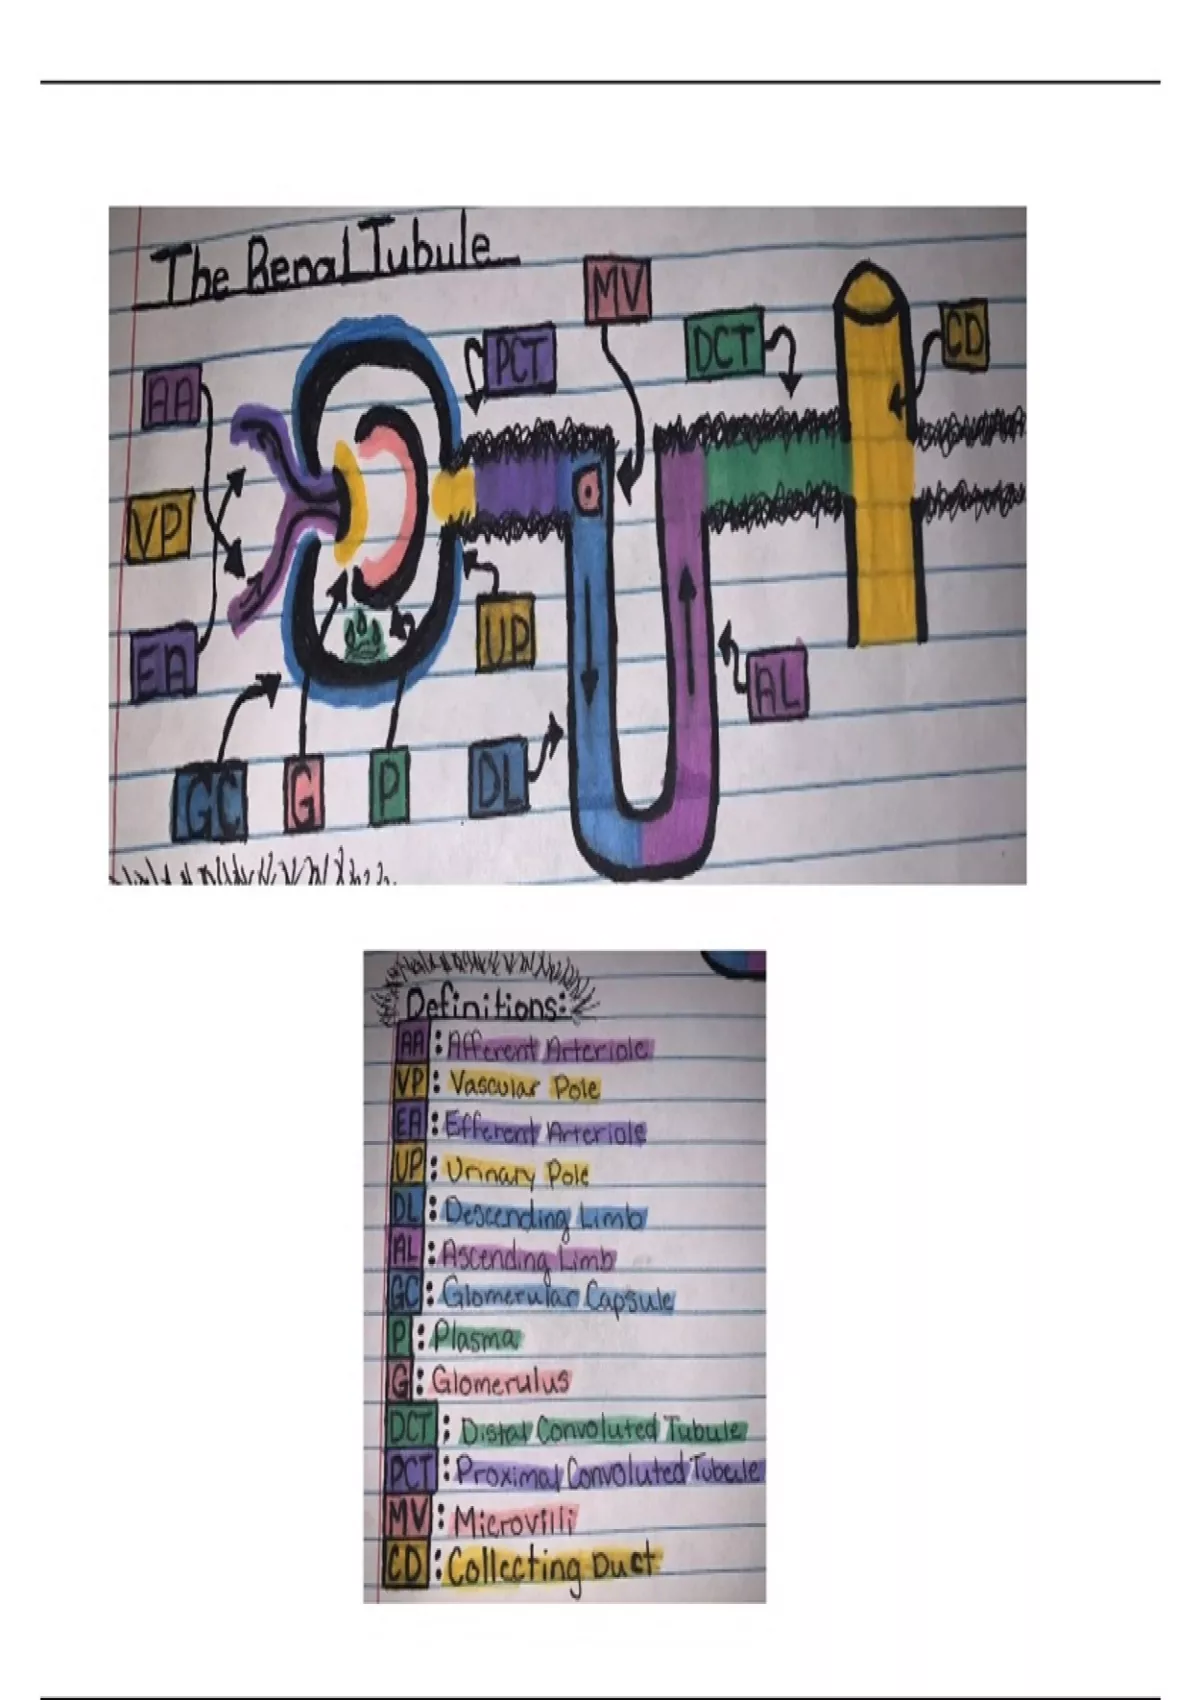 The Renal Tubule
MV
PCT
DCT
CD
AA
VP
EA
UP
AL
GC
G
P
DL
Definitions:
AA: Afferent Arteriole
VP: Vascular Pole
EA: Efferent Arteriole
UP: Urinary Pole
DL: Descending Limb
AL: Ascending Limb
GC: Glomerular Capsule
P: Plasma
G: Glomerulus
DCT: Distal Convoluted Tubule
PCT: Proximal Convoluted Tubule
MV: Microvilli
CD: Collecting Duct